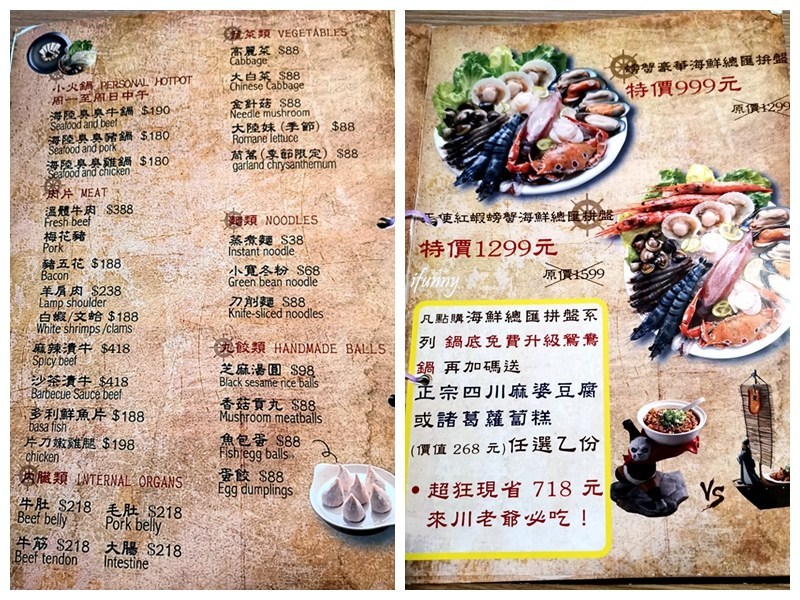 小火鍋 PERSONAL HOTPOT
周一至周日中午
海陸臭臭牛鍋 $190
Seafood and beef
海陸臭臭豬鍋 $180
Seafood and pork
海陸臭臭雞鍋 $180
Seafood and chicken
肉片 MEAT
溫體牛肉 $388
Fresh beef
梅花豬
Pork
豬五花 $188
Bacon
羊肩肉 $238
Lamp shoulder
白蝦/文蛤 $188
White shrimps /clams
麻辣漬牛 $418
Spicy beef
沙茶漬牛 $418
Barbecue Sauce beef
多利鮮魚片 $188
basa fish
片刀嫩雞腿 $198
chicken
內臟類 INTERNAL ORGANS
牛肚 $218 毛肚 $218
Beef belly Pork belly
牛筋 $218 大腸 $218
Beef tendon Intestine
蔬菜類 VEGETABLES
高麗菜 $88
Cabbage
大白菜 $88
Chinese Cabbage
金針菇 $88
Needle mushroom
大陸妹(季節) $88
Romane lettuce
茼萵(季節限定) $88
garland chrysanthemum
麵類 NOODLES
蒸煮麵 $38
Instant noodle
小寬冬粉 $68
Green bean noodle
刀削麵 $88
Knife-sliced noodles
丸餃類 HANDMADE BALLS
芝麻湯圓 $98
Black sesame rice balls
香菇貢丸 $88
Mushroom meatballs
魚包蛋 $88
Fish egg balls
蛋餃 $88
Egg dumplings
螃蟹豪華海鮮總匯拚盤
特價999元
原價1299
天使紅蝦螃蟹海鮮總匯拚盤
特價1299元
原價1599
ifunny
凡點購海鮮總匯拚盤系
列 鍋底免費升級鴛鴦
鍋 再加碼送
正宗四川麻婆豆腐
或諸葛蘿蔔糕
(價值 268 元)任選乙份
• 超狂現省 718 元
來川老爺必吃！
VS